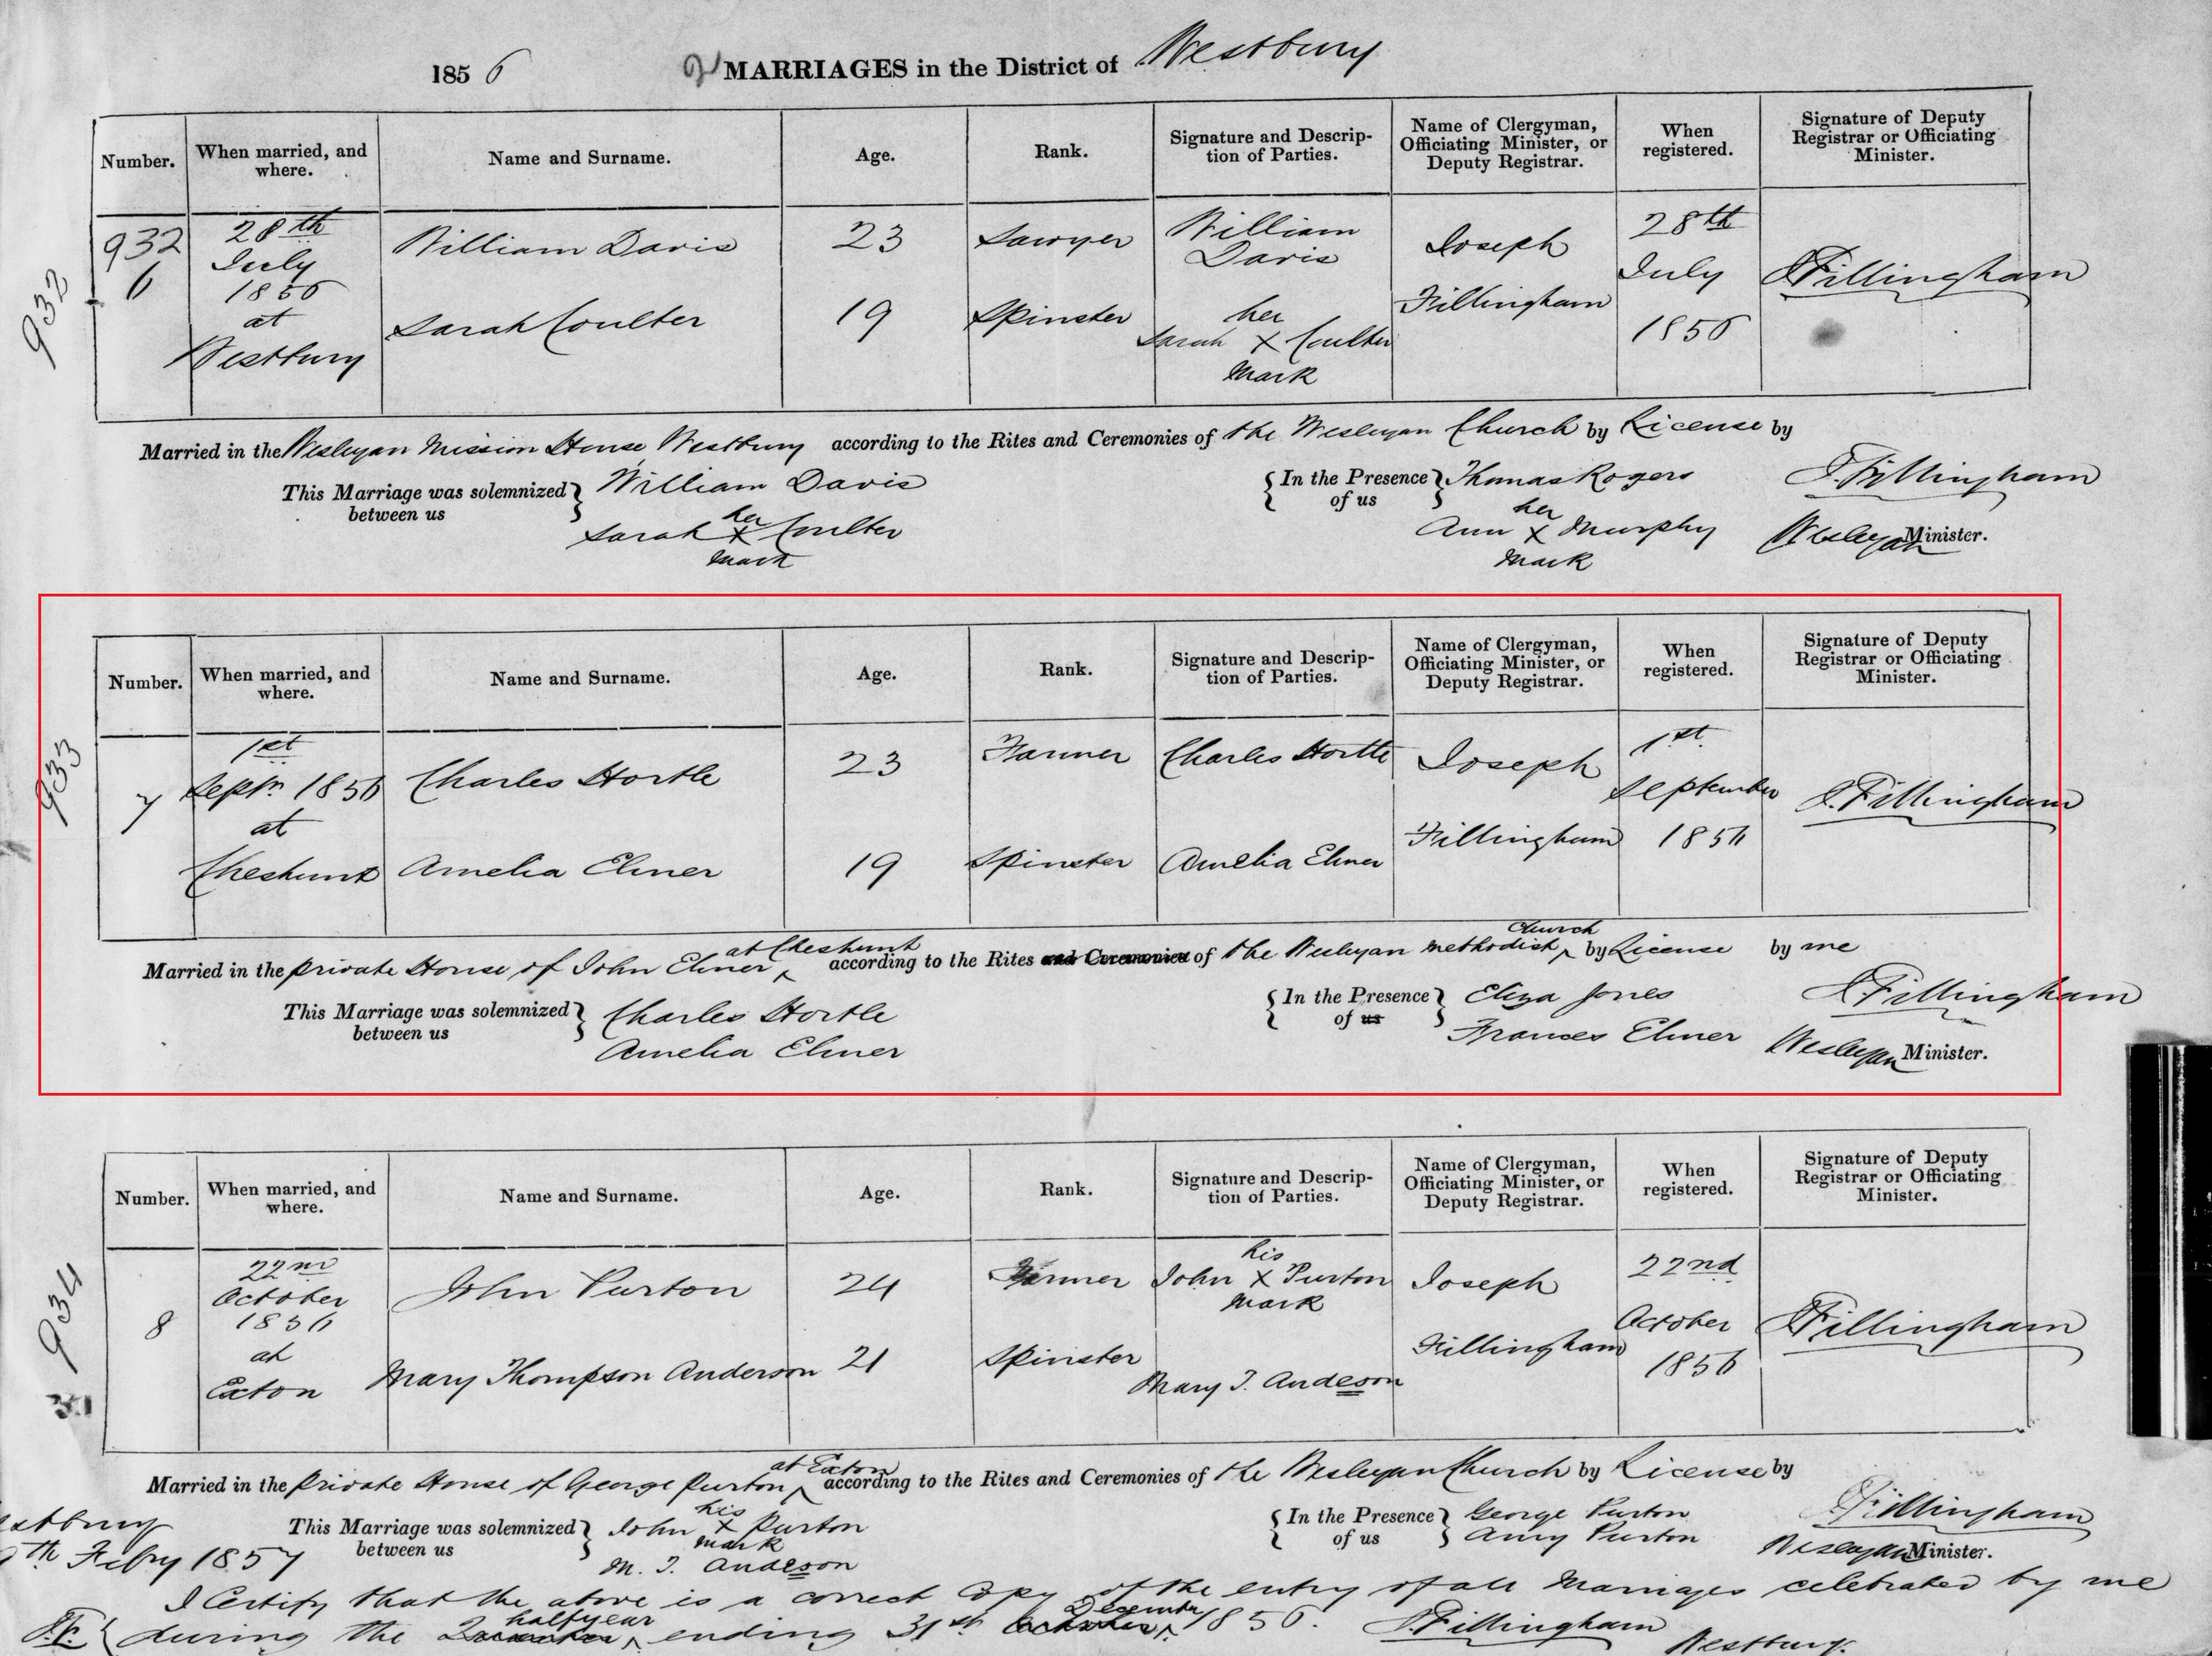 1856 2 MARRIAGES in the District of Westbury
Number. When married, and where. Name and Surname. Age. Rank. Signature and Description of Parties. Name of Clergyman, Officiating Minister, or Deputy Registrar. When registered. Signature of Deputy Registrar or Officiating Minister.
932
932 6 28th July 1856 at Westbury William Davis 23 Sawyer William Davis Joseph Fillingham 28th July 1856 J Fillingham
Sarah Coulter 19 Spinster her Sarah X Coulter Mark
Married in the Wesleyan Mission House, Westbury according to the Rites and Ceremonies of the Wesleyan Church by License by
This Marriage was solemnized between us William Davis Sarah her X Coulter Mark In the Presence of us Thomas Rogers Ann her X Murphy Mark J. Fillingham Wesleyan Minister.
Number. When married, and where. Name and Surname. Age. Rank. Signature and Description of Parties. Name of Clergyman, Officiating Minister, or Deputy Registrar. When registered. Signature of Deputy Registrar or Officiating Minister.
933
7 1st Septr 1856 at Cheshunt Charles Hortle 23 Farmer Charles Hortle Joseph Fillingham 1st September 1856 J. Fillingham
Amelia Elmer 19 Spinster Amelia Elmer
Married in the private House of John Elmer at Cheshunt according to the Rites and Ceremonies of the Wesleyan Methodist Church by License by me
This Marriage was solemnized between us Charles Hortle Amelia Elmer In the Presence of us Eliza Jones Frances Elmer J Fillingham Wesleyan Minister.
Number. When married, and where. Name and Surname. Age. Rank. Signature and Description of Parties. Name of Clergyman, Officiating Minister, or Deputy Registrar. When registered. Signature of Deputy Registrar or Officiating Minister.
934
8 22nd October 1856 at Exton John Purton 24 Farmer his John X Purton Mark Joseph Fillingham 22nd October 1856 J Fillingham
Mary Thompson Anderson 21 Spinster Mary T. Andeson
Married in the private House of George Purton at Exton according to the Rites and Ceremonies of the Wesleyan Church by License by
This Marriage was solemnized between us John his X Purton Mark M. T. Andeson In the Presence of us George Purton Amy Purton J Fillingham Wesleyan Minister.
stbury
th Feby 1857
I Certify that the above is a correct Copy of the entry of all Marriages celebrated by me
J.F. during the halfyear ending 31st December 1856. J Fillingham
Westbury.